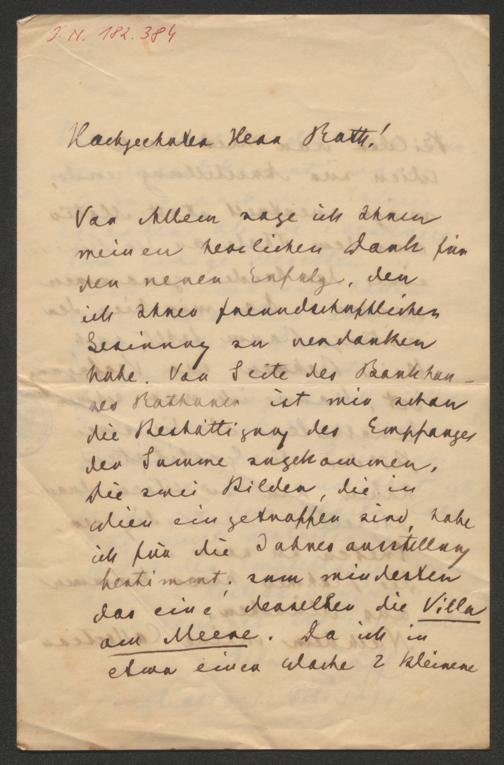 J. N. 182.384
Hochgeehrter Herr Rath!
Vor Allem sage ich Ihnen
meinen herzlichen Dank für
den neuen Erfolg, den
ich Ihrer freundschaftlichen
Gesinnung zu verdanken
habe. Von Seite des Bankhau-
ses ist mir schon
die Bestättigung des Empfanges
der Summe zugekommen.
Die zwei Bilder, die in
Wien eingetroffen sind, habe
ich für die Jahresausstellung
bestimmt. zum mindesten
das eine derselben die Villa
am Meere. Da ich in
etwa einer Woche 2 kleinere